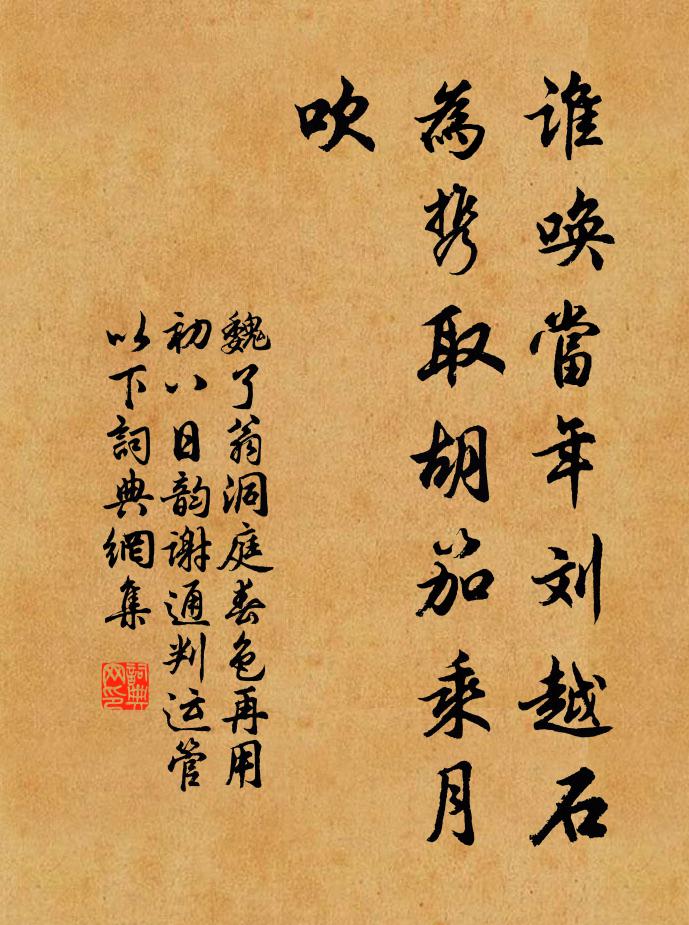 谁唤當年刘越石
為携取胡笳乘月
吹
魏了翁洞庭春色再用
初八日韵谢通判运管
以下詞典網集
詞典網印